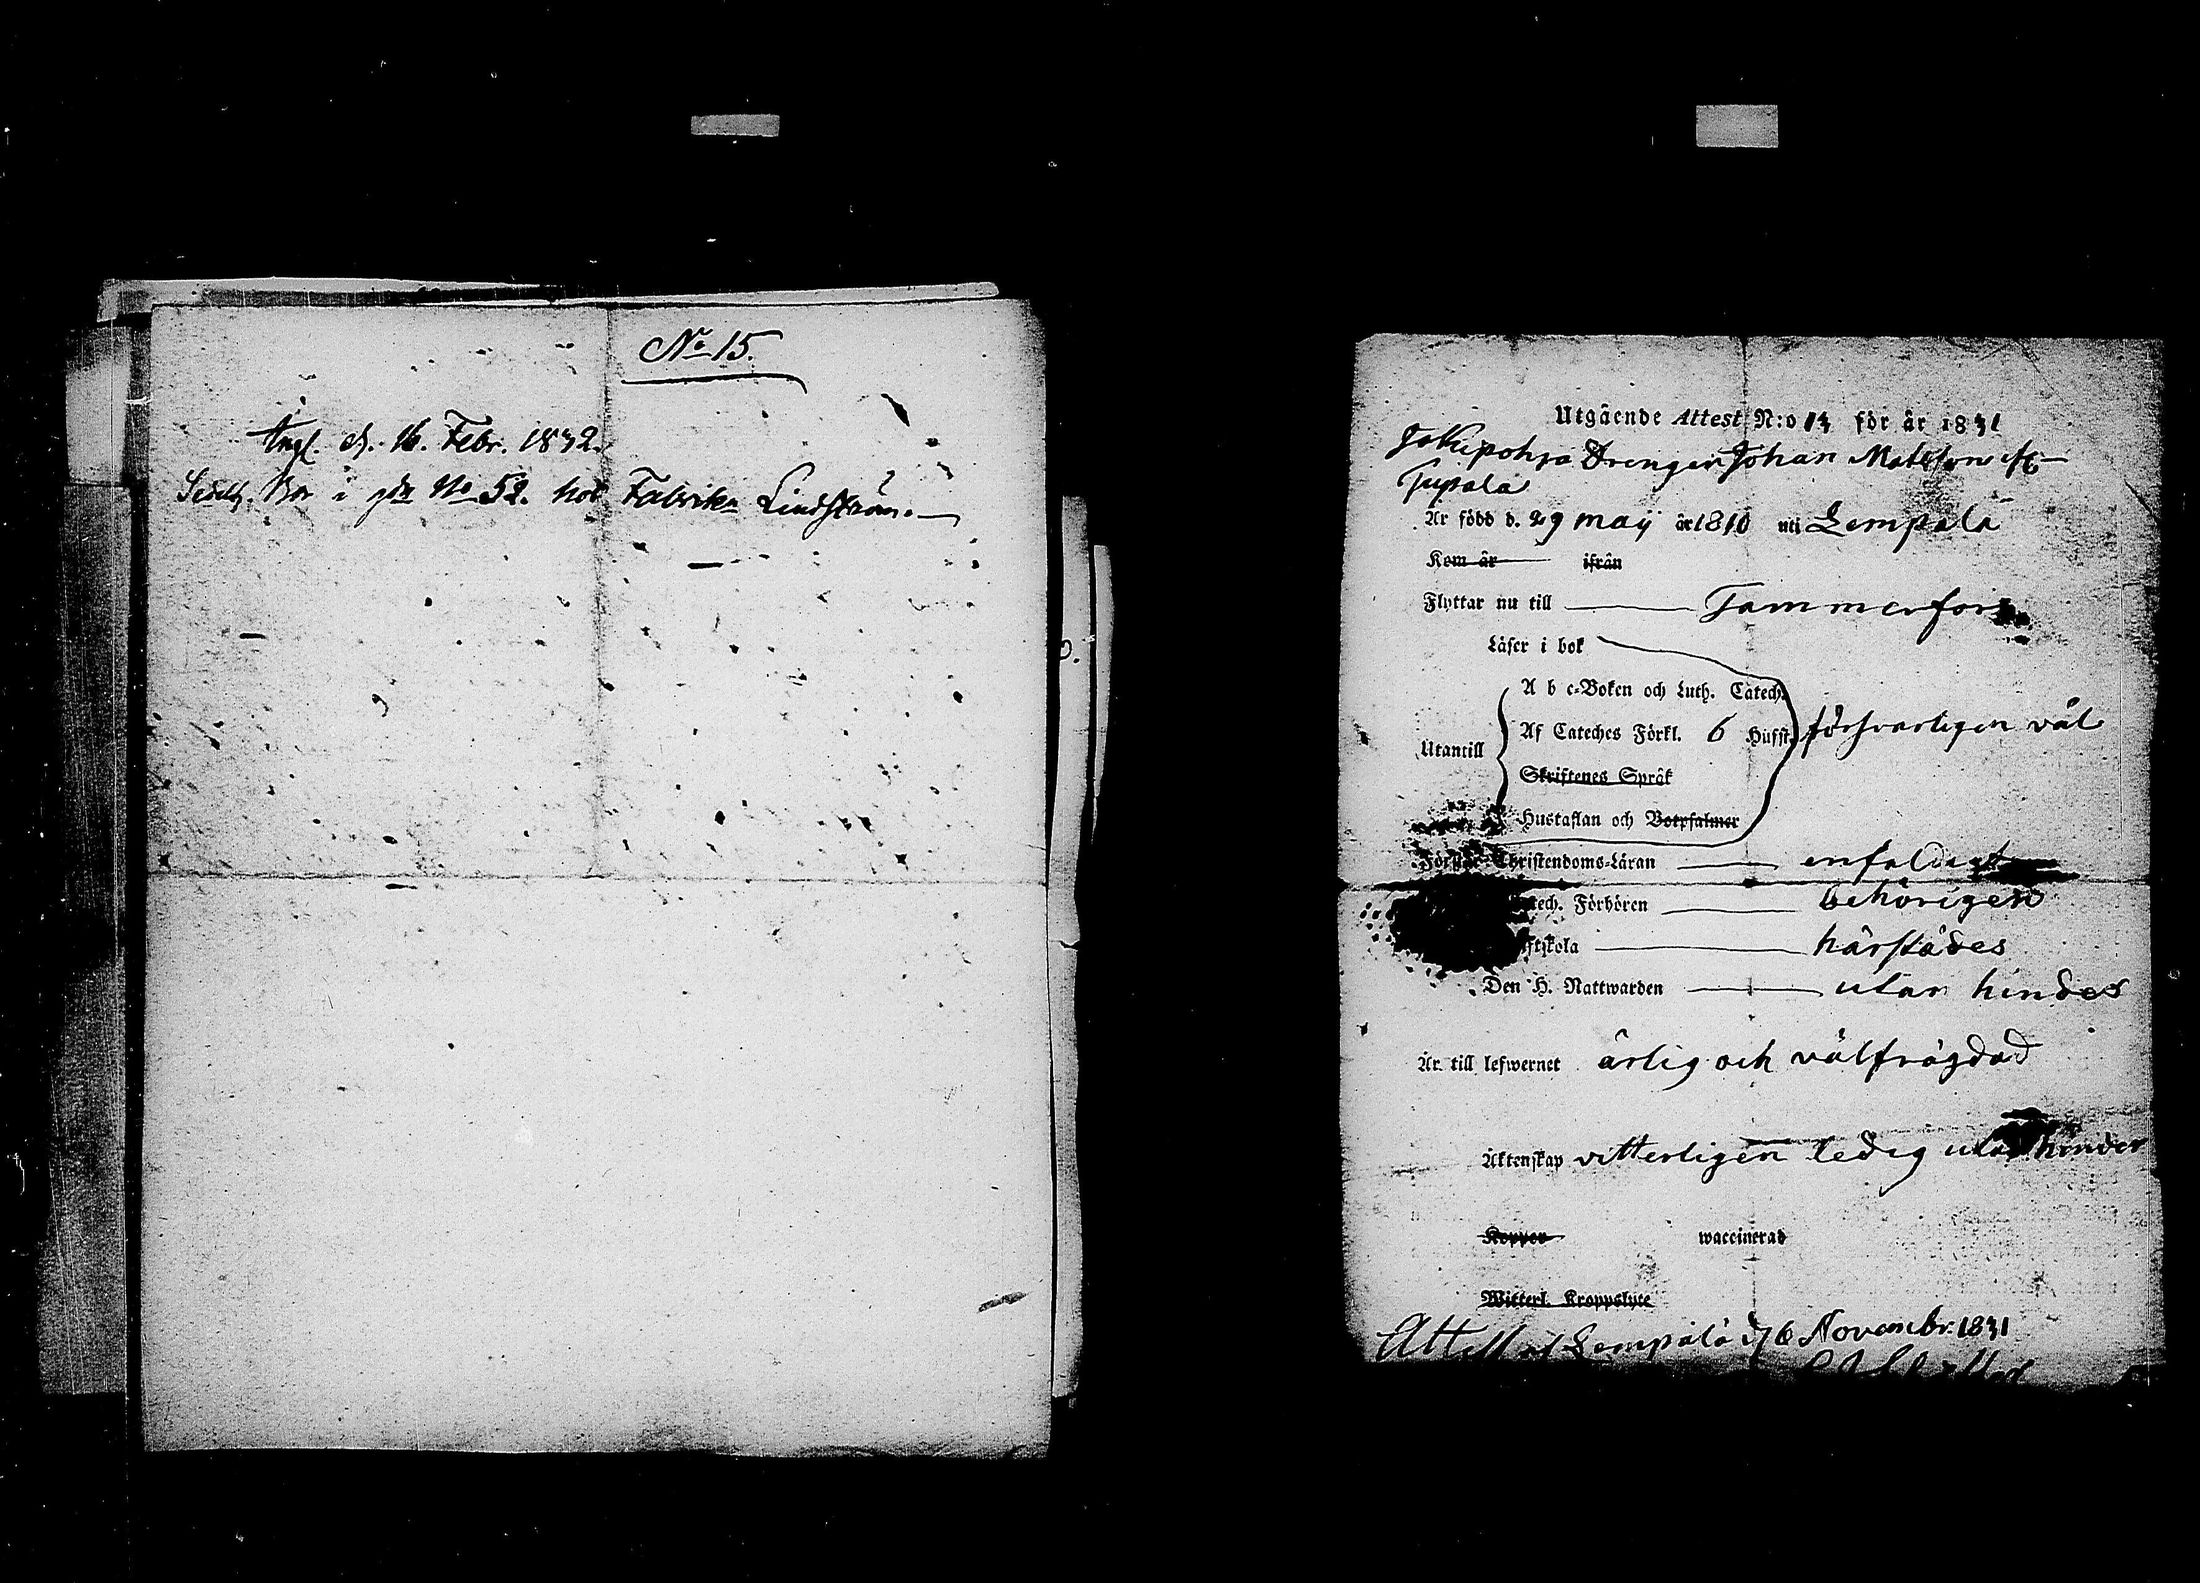 No 15.
Angl. d. 16. Febr. 1832.
Bor i gdn No 52. hos Fabrikn Lindström.
Utgående Attest N:o 13 för år 1831
Jokipohja Drengen Johan Mattsson
Är född d. 29 maÿ år 1810 uti Lempälä
Kom år ifrån
Flyttar nu till Tammerfors
Läser i bok
A b c-Boken och Luth. Catech.
Af Cateches Förkl. 6 Hufst. försvarligen väl
Utantill
Skriftenes Språk
Hustaflan och Botpsalmer
Förstår Christendoms-Läran enfaldigt
tech. Förhören behörigen
ftskola härstädes
Den H. Nattwarden utan hinder
Är till lefwernet ärlig och välfrägdad
Äktenskap vitterligen ledig utan hinder
Koppor waccinerad
Witterl. Kroppslyte
Attest af Lempälä d 6 Novembr. 1831